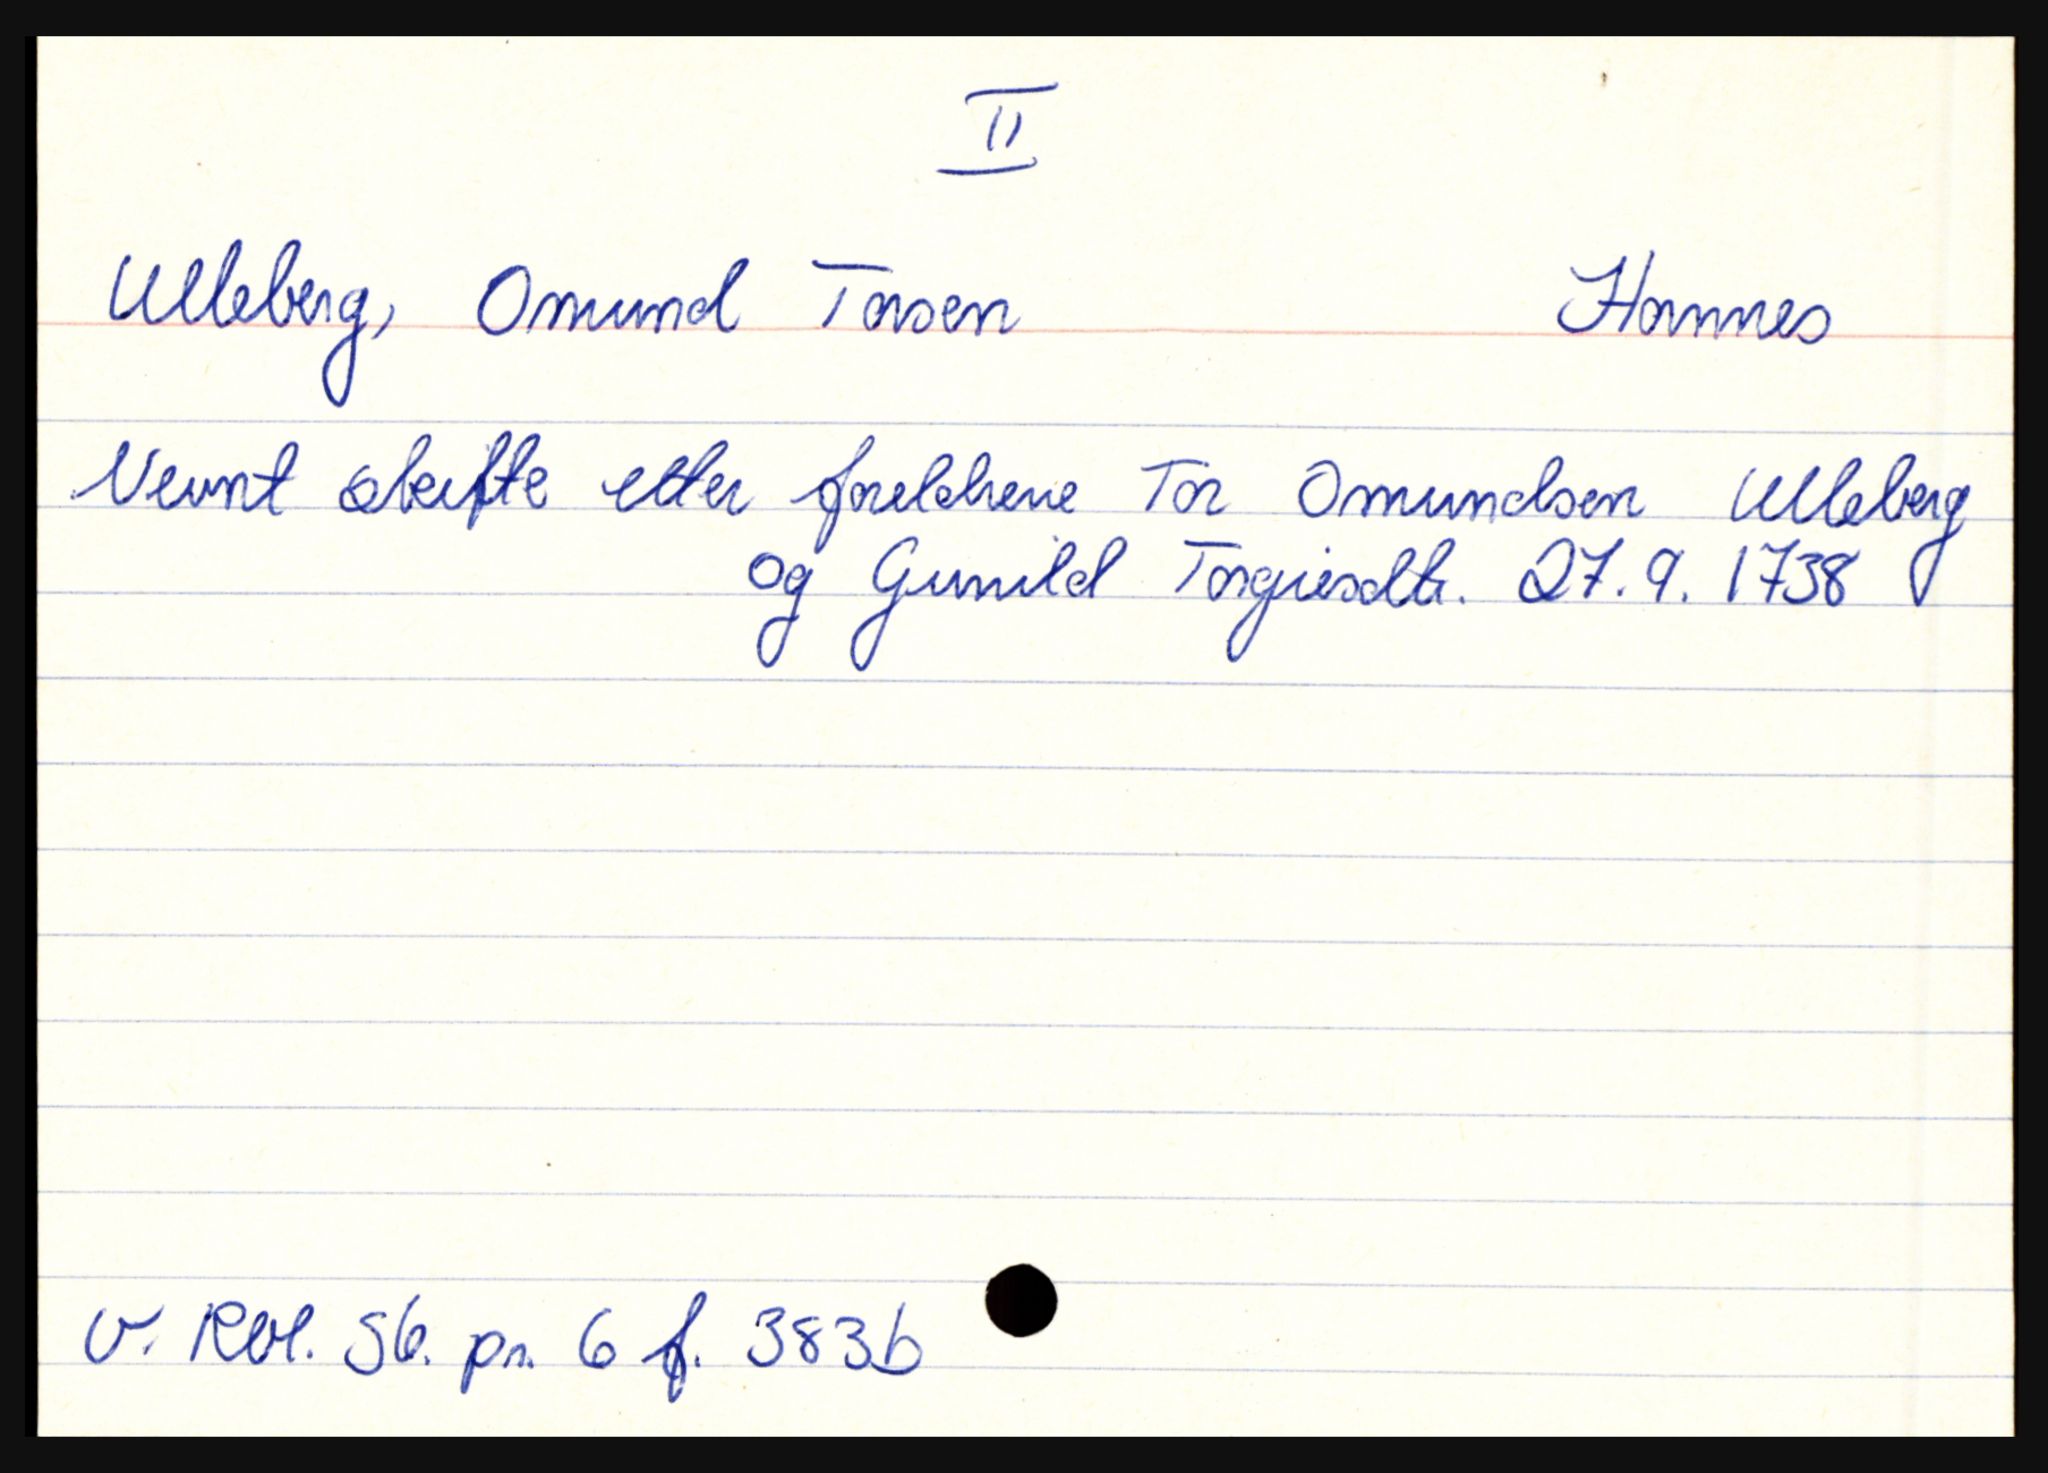 II
Ulleberg, Omund Torsen Homnes
Nevnt skifte etter foreldrene Tor Omundsen Ulleberg
og Gunild Torgiusdtr. 27.9.1738
V. Rbl. Sb. pr. 6 f. 383b